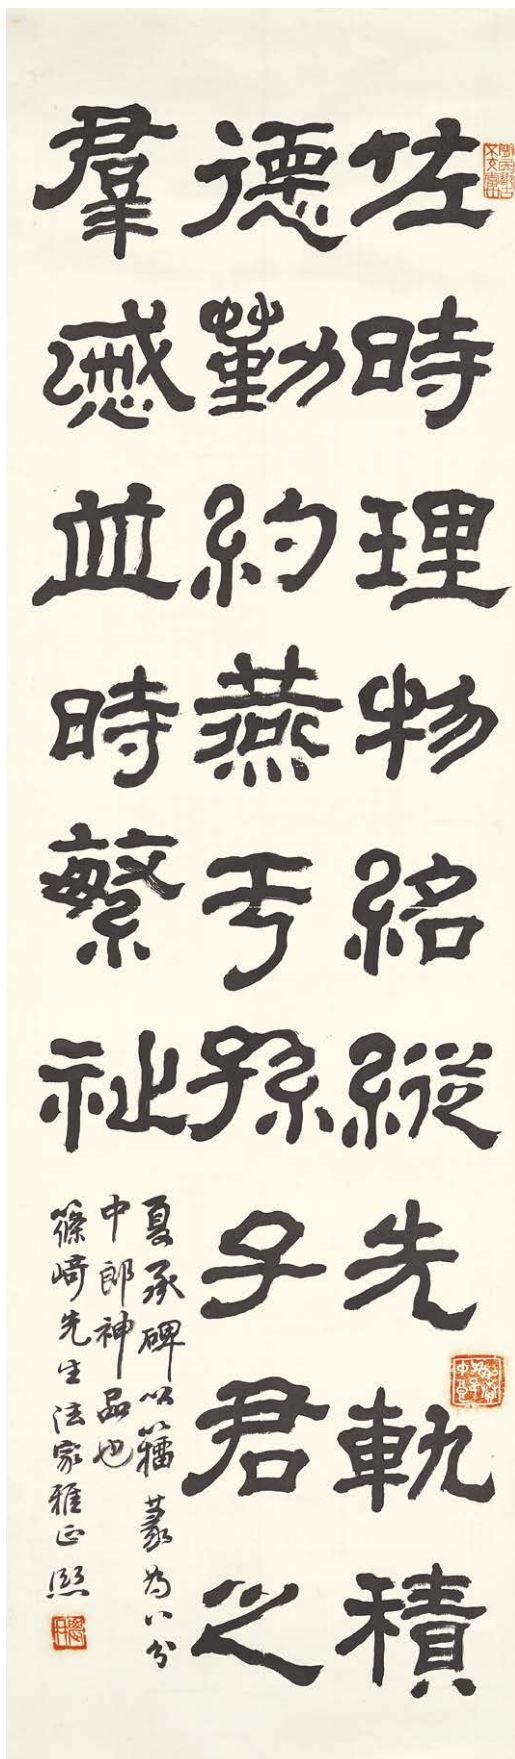 佐時理物紹縱先軌積
德勤約燕于孫子君之
羣慼並時繁祉
夏承碑以籀篆為八分
中郎神品也
篠﨑先生法家雅正 熙